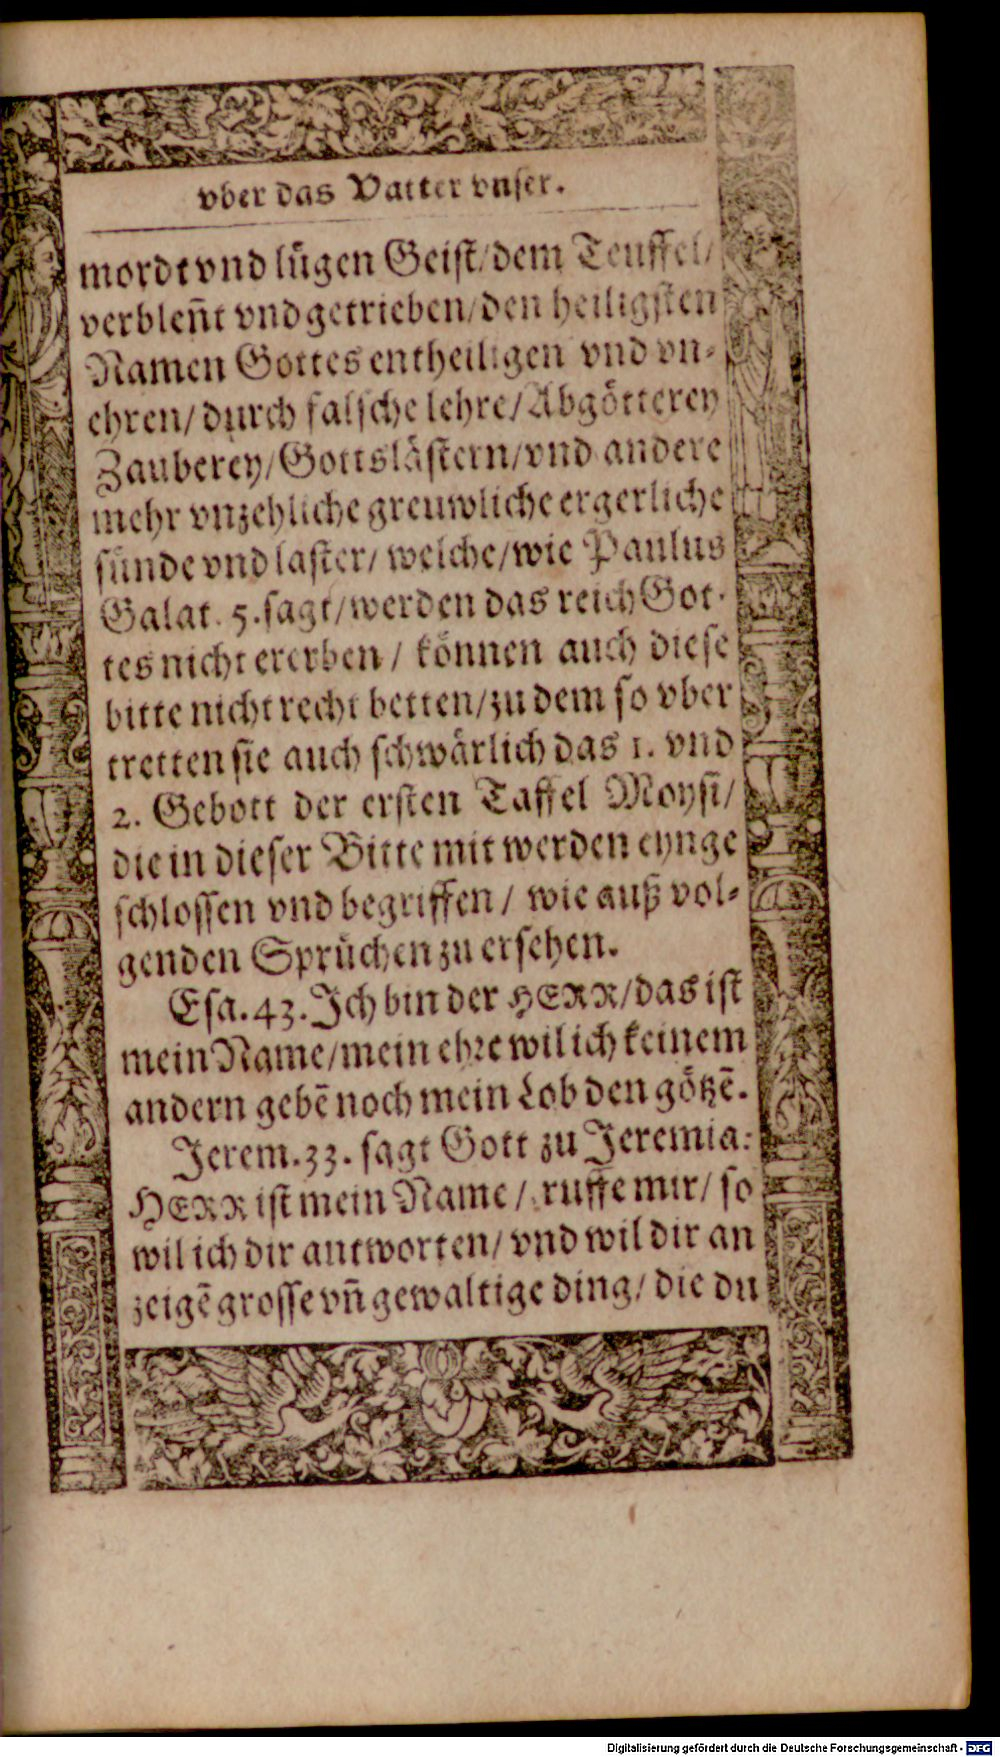 vber das Vatter vnser.
mordt vnd lügen Geist/dem Teuffel/
verbleñt vnd getrieben/den heiligsten
Namen Gottes entheiligen vnd vn-
ehren/ durch falsche lehre/Abgötterey
Zauberey/Gottslästern/vnd andere
mehr vnzehliche greuwliche ergerliche
sünde vnd laster/ welche/wie Paulus
Galat. 5.sagt/werden das reich Got-
tes nicht ererben/ können auch diese
bitte nicht recht betten/zu dem so vber
tretten sie auch schwärlich das 1. vnd
2. Gebott der ersten Taffel Moysi/
die in dieser Bitte mit werden eynge
schlossen vnd begriffen/ wie auß vol-
genden Sprüchen zu ersehen.
Esa.43.Ich bin der HERR/das ist
mein Name/mein ehre wil ich keinem
andern gebē noch mein Lob den götzē.
Jerem.33. sagt Gott zu Jeremia:
HERR ist mein Name/ ruffe mir/ so
wil ich dir antworten/ vnd wil dir an
zeigē grosse vñ gewaltige ding/ die du
Digitalisierung gefördert durch die Deutsche Forschungsgemeinschaft - DFG